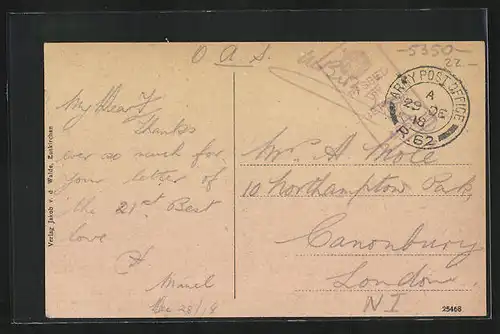 -5350-
22.-
O A S.
ARMY POST OFFICE
A
29 DE
18
R.62
My Dear
Thanks
ever so much for
your letter of
the 21st Best
love
Dec 28/18
Mrs. A Mole
10 Northampton Park,
Canonbury
London.
N I
Verlag Jakob v. d. Walde, Euskirchen
25468